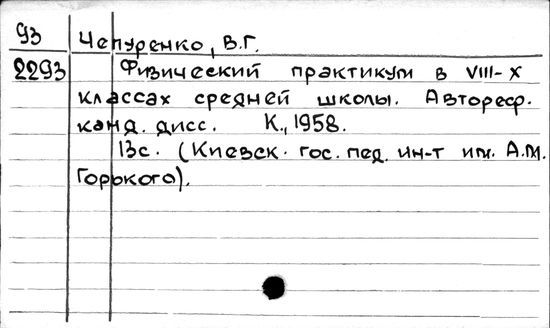 93 Чепуренко, В.Г.
2293 Физический практикум в VIII-X
классах средней школы. Автореф.
канд. дисс. К., 1958.
13с. (Киевск. гос. пед. ин-т им. А.М.
Горького).